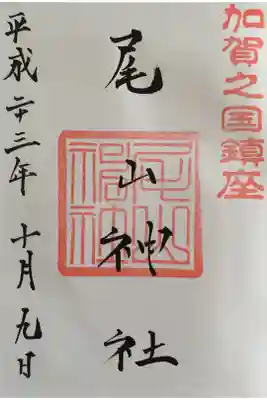 加賀之国鎮座
尾山神社
平成二十三年十月九日